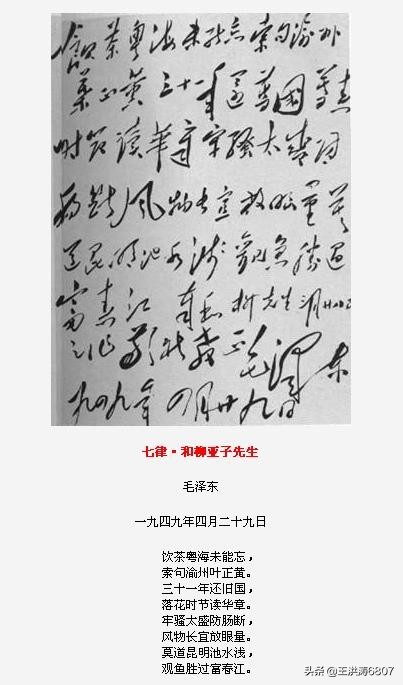 飲茶粤海未能忘索句渝州
葉正黄三十一年還舊國落花
时節读華章牢騷太盛防
肠断风物长宜放眼量莫
道昆明池水浅觀魚勝過
富春江 奉和柳先生三月廿八日
之作敬祈教正 毛泽东
一九四九年四月廿九日
七律·和柳亚子先生
毛泽东
一九四九年四月二十九日
饮茶粤海未能忘，
索句渝州叶正黄。
三十一年还旧国，
落花时节读华章。
牢骚太盛防肠断，
风物长宜放眼量。
莫道昆明池水浅，
观鱼胜过富春江。
头条 @王洪涛6807